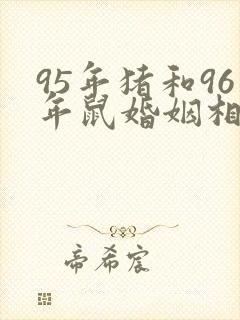 95年猪和96
年鼠婚姻相
帝希宸